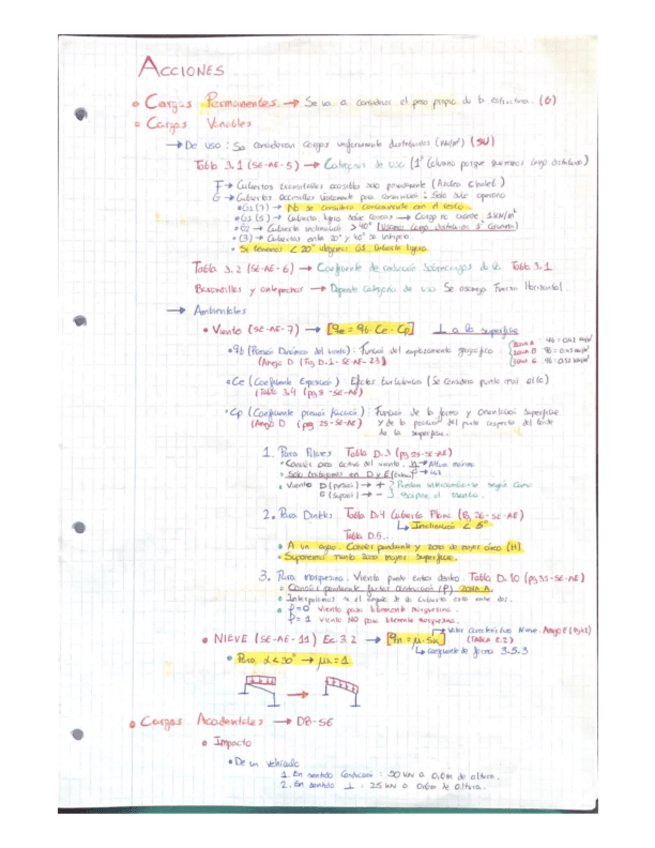 ACCIONES
• Cargas Permanentes → Se va a considerar el peso propio de la estructura. (G)
• Cargas Variables
→ De uso : Se consideran cargas uniformemente distribuidas (kN/m²) (SU)
Tabla 3.1 (SE-AE-5) → Categorías de uso (1ª Columna porque queremos carga distribuida)
F → Cubiertas transitables accesibles solo privadamente (Azotea Chalet)
G → Cubiertas accesibles únicamente para conservación : Solo sube operario
• G1 (7) → No se considera concomitante con el resto.
• G1 (5) → Cubierta ligera sobre correas → Carga no excede 1 kN/m²
• G2 → Cubierta inclinación > 40°
• (3) → Cubiertas entre 20° y 40° se interpola
• Si tenemos < 20° elegimos G1 Cubierta ligera.
Tabla 3.2 (SE-AE-6) → Coeficiente de reducción sobrecargas de la Tabla 3.1
Barandillas y antepechos → Depende Categoría de uso Se escoge Fuerza Horizontal.
→ Ambientales
• Viento (SE-AE-7) → [qe = qb · Ce · Cp] ⊥ a la superficie
• qb (Presión Dinámica del viento) : Función del emplazamiento geográfico
(Anejo D (Fig D.1 - SE-AE-23)
ZONA A qb = 0,42 kN/m²
ZONA B qb = 0,45 kN/m²
ZONA C qb = 0,52 kN/m²
• Ce (Coeficiente Exposición) Efectos turbulencias (Se considera punto más alto)
(Tabla 3.4 (pg 8 - SE-AE)
• Cp (Coeficiente presión succión) : Función de la forma y orientación superficie
(Anejo D (pg 25-SE-AE) y de la posición del punto respecto del borde
de la superficie.
1. Para Pilares Tabla D.3 (pg 27-SE-AE)
• Solo trabajamos en D y E
• Viento D (presión) → +
E (succión) → -
2. Para Dinteles Tabla D.4 Cubierta Plana (Pg 26-SE-AE)
↳ Inclinación < 5°
Tabla D.5...
• A un agua Conocer pendiente y zona de mayor área (H)
• Suponemos viento zona mayor superficie.
3. Para marquesina. Viento puede entrar dentro. Tabla D.10 (pg 35-SE-AE)
• Conocer pendiente factor obstrucción (φ) ZONA A
• Interpolamos si el ángulo de la cubierta está entre dos.
• φ=0 Viento pasa libremente marquesina.
φ=1 Viento NO pasa libremente marquesina.
• NIEVE (SE-AE-11) Ec. 3.2 → [qn = μ · Sk] → Valor Característico Nieve. Anejo E
(TABLA E.2)
↳ Coeficiente de forma 3.5.3
• Para α < 30° → μ = 1
• Cargas Accidentales → DB-SE
• Impacto
• De un vehículo
1. En sentido conducción : 50 kN a 0,6m de altura.
2. En sentido ⊥ : 25 kN a 0,6m de altura.